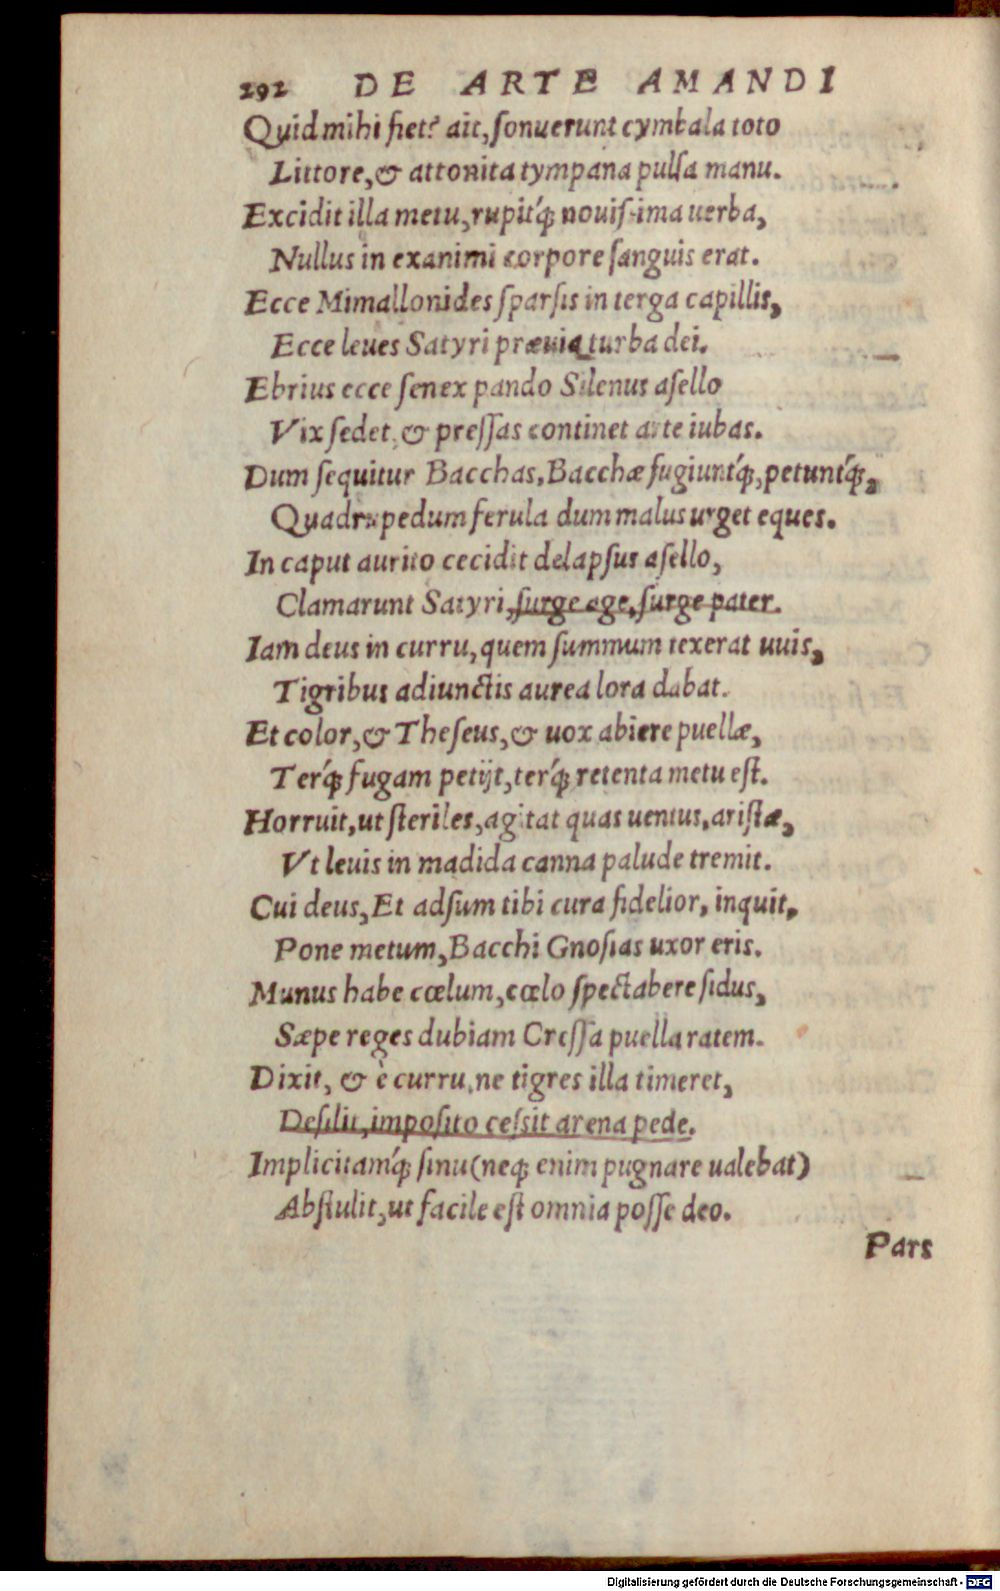 292 DE ARTE AMANDI
Quid mihi fiet? ait, sonuerunt cymbala toto
Littore, & attonita tympana pulsa manu.
Excidit illa metu, rupitq́; nouissima uerba,
Nullus in exanimi corpore sanguis erat.
Ecce Mimallonides sparsis in terga capillis,
Ecce leues Satyri præuia turba dei.
Ebrius ecce senex pando Silenus asello
Vix sedet, & pressas continet arte iubas.
Dum sequitur Bacchas, Bacchæ fugiuntq́;, petuntq́;,
Quadrupedum ferula dum malus urget eques.
In caput aurito cecidit delapsus asello,
Clamarunt Satyri, surge age, surge pater.
Iam deus in curru, quem summum texerat uuis,
Tigribus adiunctis aurea lora dabat.
Et color, & Theseus, & uox abiere puellæ,
Terq́; fugam petijt, terq́; retenta metu est.
Horruit, ut steriles, agitat quas uentus, aristæ,
Vt leuis in madida canna palude tremit.
Cui deus, Et adsum tibi cura fidelior, inquit,
Pone metum, Bacchi Gnosias uxor eris.
Munus habe cœlum, cœlo spectabere sidus,
Sæpe reges dubiam Cressa puella ratem.
Dixit, & è curru, ne tigres illa timeret,
Desilit, imposito cessit arena pede.
Implicitamq́; sinu (neq; enim pugnare ualebat)
Abstulit, ut facile est omnia posse deo.
Pars
Digitalisierung gefördert durch die Deutsche Forschungsgemeinschaft - DFG